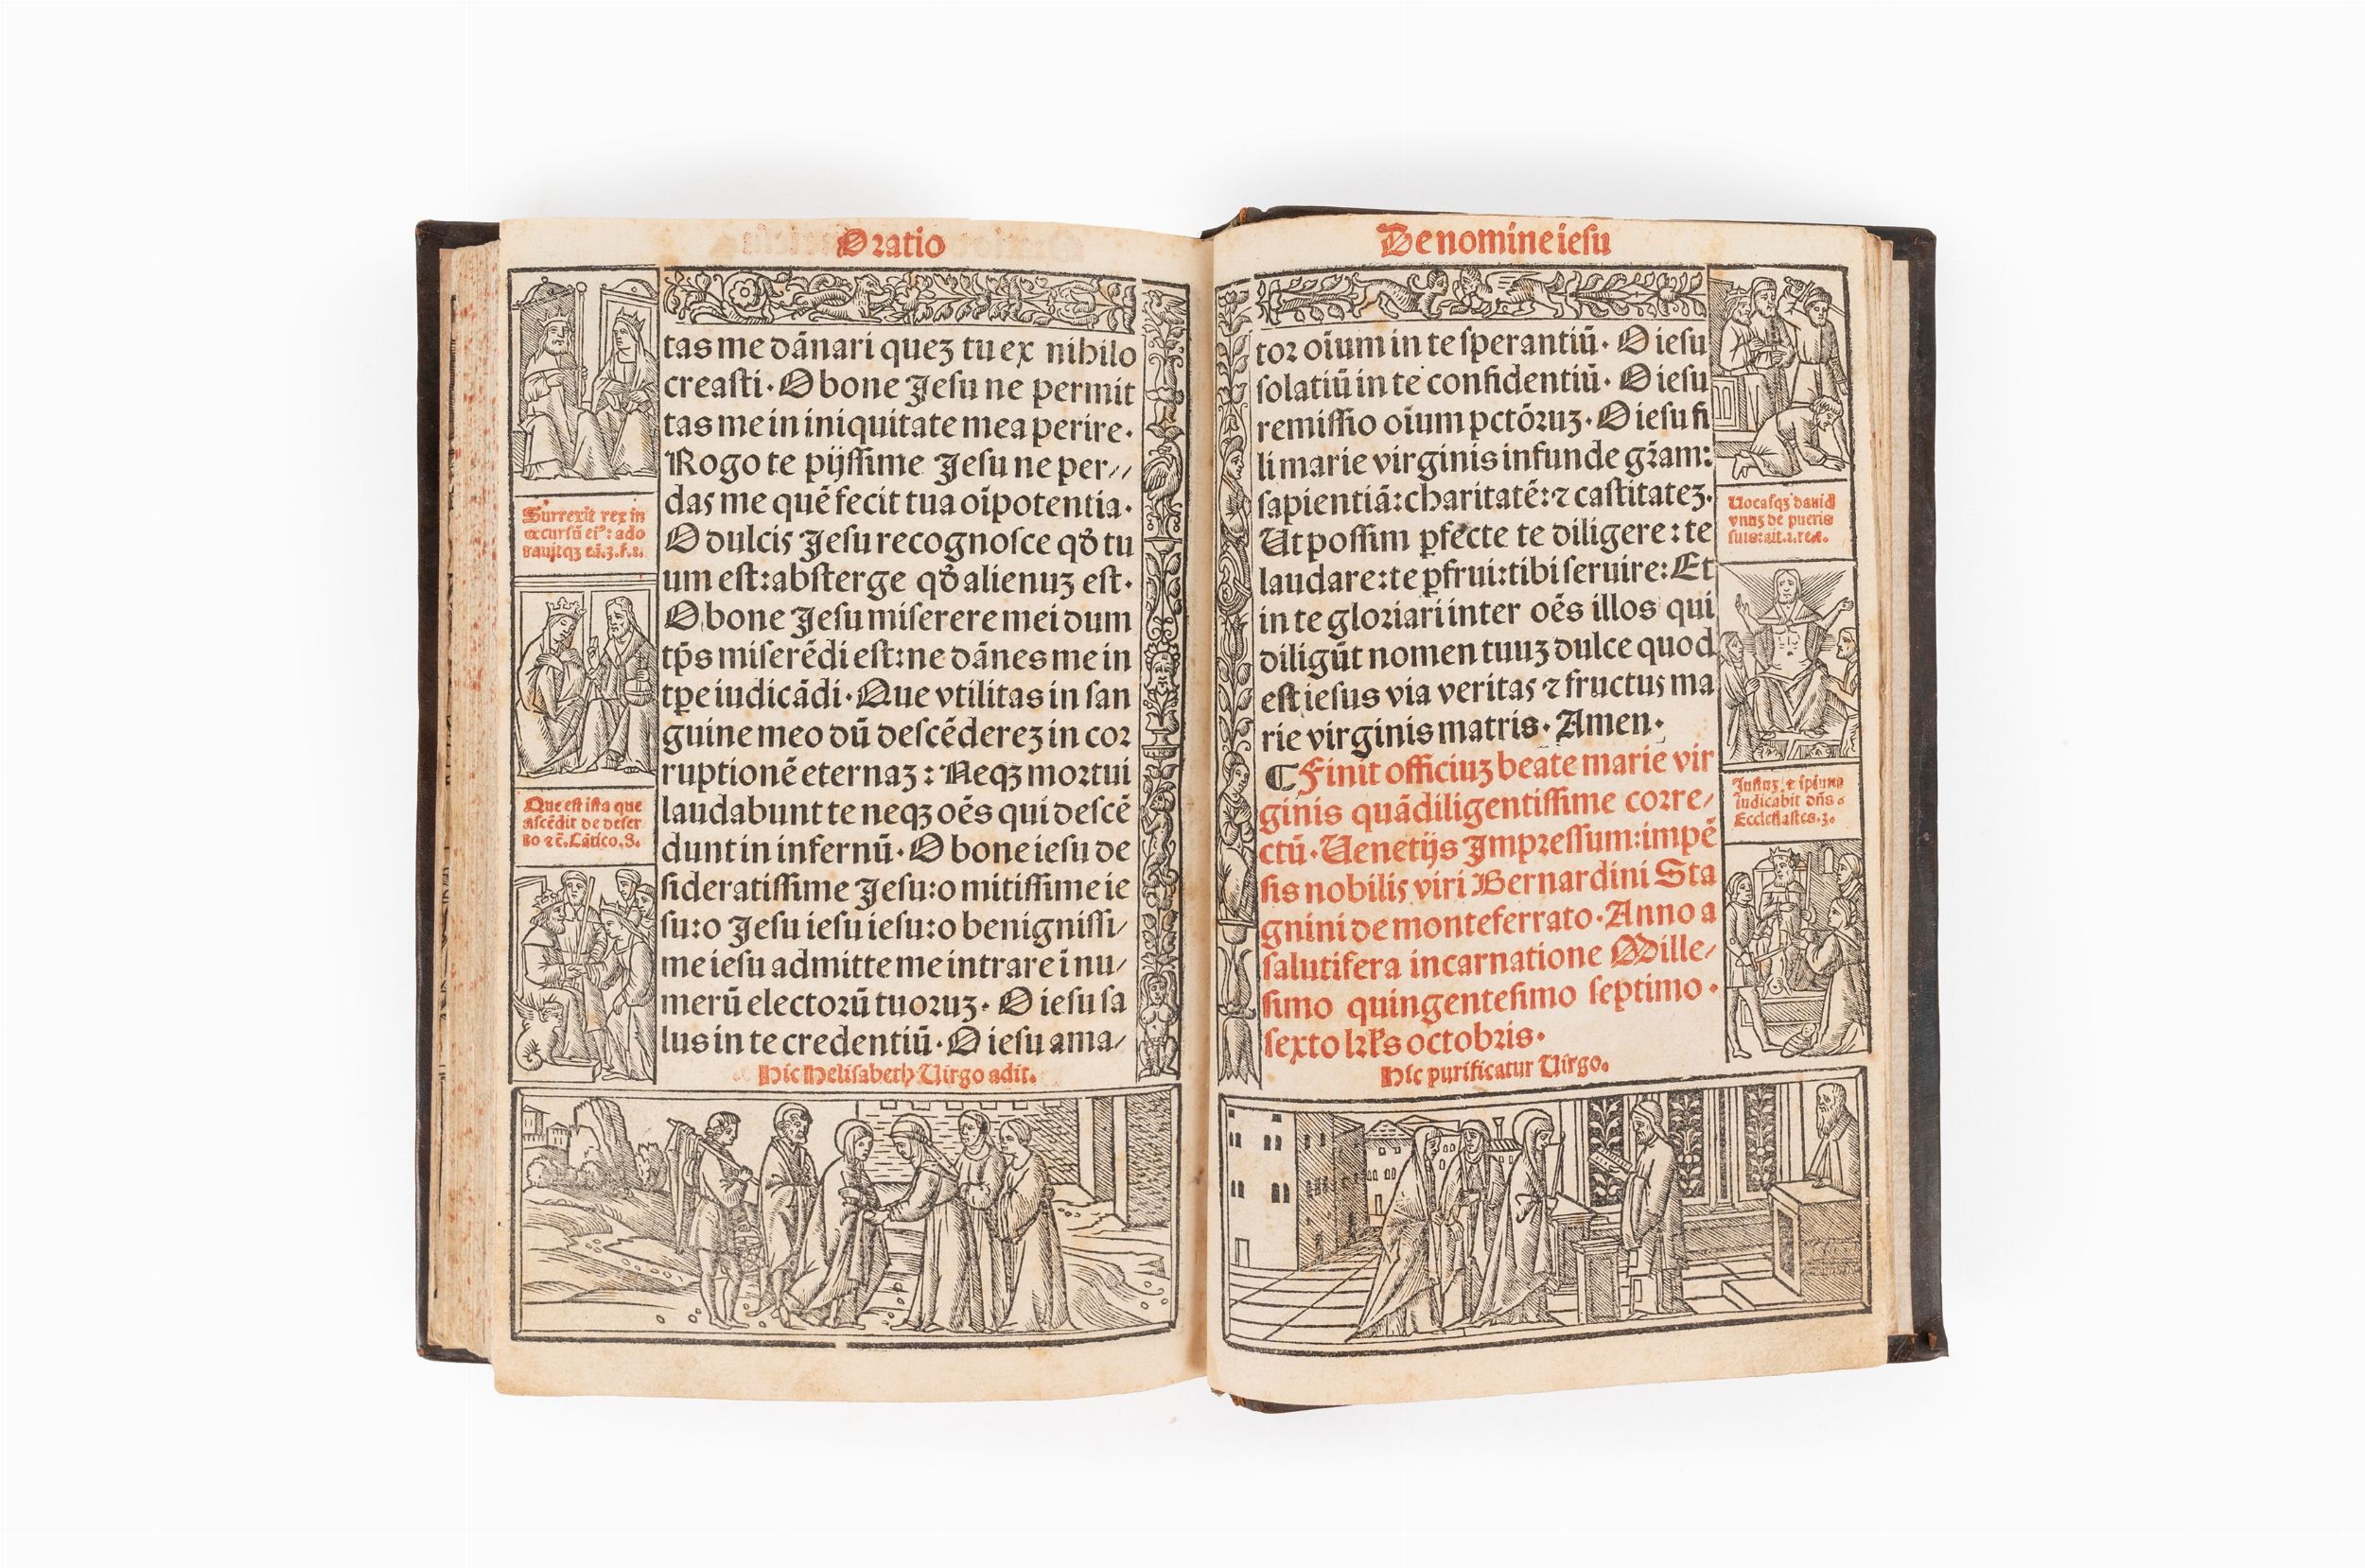 Oratio
tas me dānari quez tu ex nihilo
creasti. O bone Jesu ne permit
tas me in iniquitate mea perire.
Rogo te pijssime Jesu ne per//
das me quē fecit tua oīpotentia.
O dulcis Jesu recognosce qđ tu
um est: absterge qđ alienuz est.
O bone Jesu miserere mei dum
tp̄s miserēdi est: ne dānes me in
tp̄e iudicādi. Que vtilitas in san
guine meo dū descēderez in cor
ruptionē eternaz: Neqz mortui
laudabunt te neqz oēs qui descē
dunt in infernū. O bone iesu de
sideratissime Jesu: o mitissime ie
su: o Jesu iesu iesu: o benignissi/
me iesu admitte me intrare ī nu/
merū electorū tuoruz. O iesu sa
lus in te credentiū. O iesu ama/
Hic Helisabeth Virgo adit.
Surrexit rex in
occursū ei⁹: ado
rauitqz eā. 3. r. 2.
Que est ista que
ascēdit de deser
to ⁊ c̄. Cātico. 8.
De nomine iesu
tor oīum in te sperantiū. O iesu
solatiū in te confidentiū. O iesu
remissio oīum pctōruz. O iesu fi
li marie virginis infunde gr̄am:
sapientiā: charitatē: ⁊ castitatez.
Ut possim ꝑfecte te diligere: te
laudare: te ꝑfrui: tibi seruire: Et
in te gloriari inter oēs illos qui
diligūt nomen tuuz dulce quod
est iesus via veritas ⁊ fructus ma
rie virginis matris. Amen.
¶ Finit officiuz beate marie vir
ginis quādiligentissime corre/
ctū. Uenetijs Impressum: impē
sis nobilis viri Bernardini Sta
gnini de monteferrato. Anno a
salutifera incarnatione Mille/
simo quingentesimo septimo.
sexto kl's octobris.
Hic purificatur Virgo.
Uocasqz dauid
vnuz de pueris
suis: ait. 2. re.
Justuz ⁊ ipiuno
iudicabit dn̄s.
Ecclesiastes. 3.